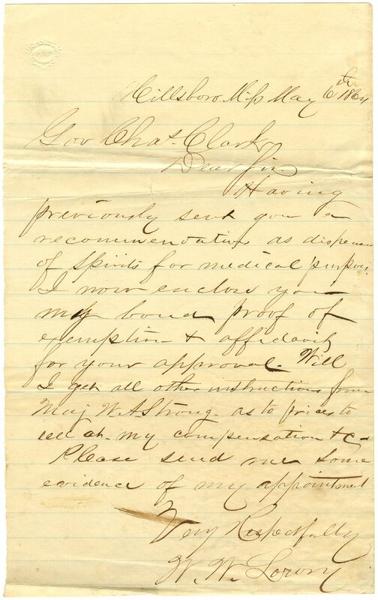 Hillsboro Miss May 6th 1864
Gov Chas. Clark
Dear Sir
Having
previously sent you a
recommendation as dispenser
of spirits for medical purposes
I now enclose you
my bond proof of
exemption & affidavit
for your approval. Will
I get all other instructions from
Maj W A Strong as to prices to
sell at. my compensation &c
Please send me some
evidence of my appointment
Very Respectfully
W. W. Lowry